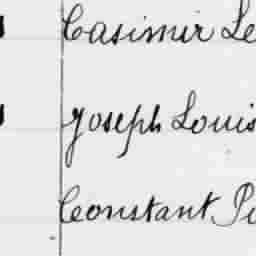 Casimir Le
Joseph Louis
Constant Pi